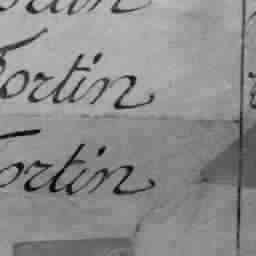 Fortin
Fortin